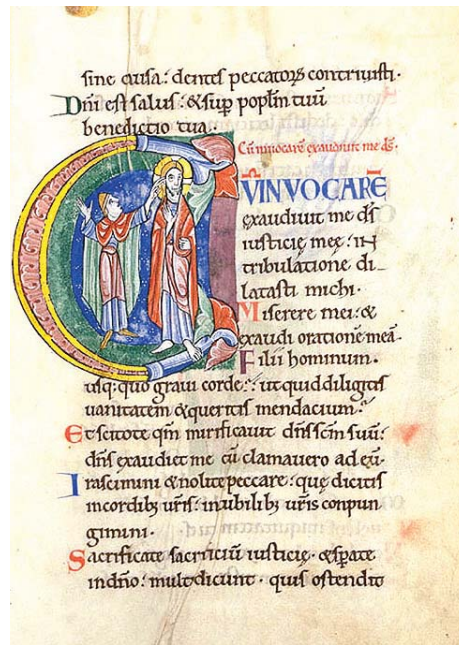 sine causa: dentes peccatorū contrivisti.
Dn̄i est salus: & sup poplm̄ tuū
benedictio tua.
Cū invocarē exaudivit me ds̄.
CVM INVOCARĒ
exaudivit me ds̄
iusticiȩ meȩ: in
tribulatione di-
latasti michi.
Miserere mei: &
exaudi orationē meā.
Filii hominum.
usq; quo gravi corde: ut quid diligitis
vanitatem & queritis mendacium:
Et scitote qm̄ mirificavit dn̄s scm̄ suū:
dn̄s exaudiet me cū clamavero ad eū.
Irascimini & nolite peccare: quȩ dicitis
in cordib; vr̄is: in cubilib; vr̄is conpun
gimini.
Sacrificate sacriciū iusticiȩ. & sp̄ate
in dn̄o: multi dicunt. quis ostendit